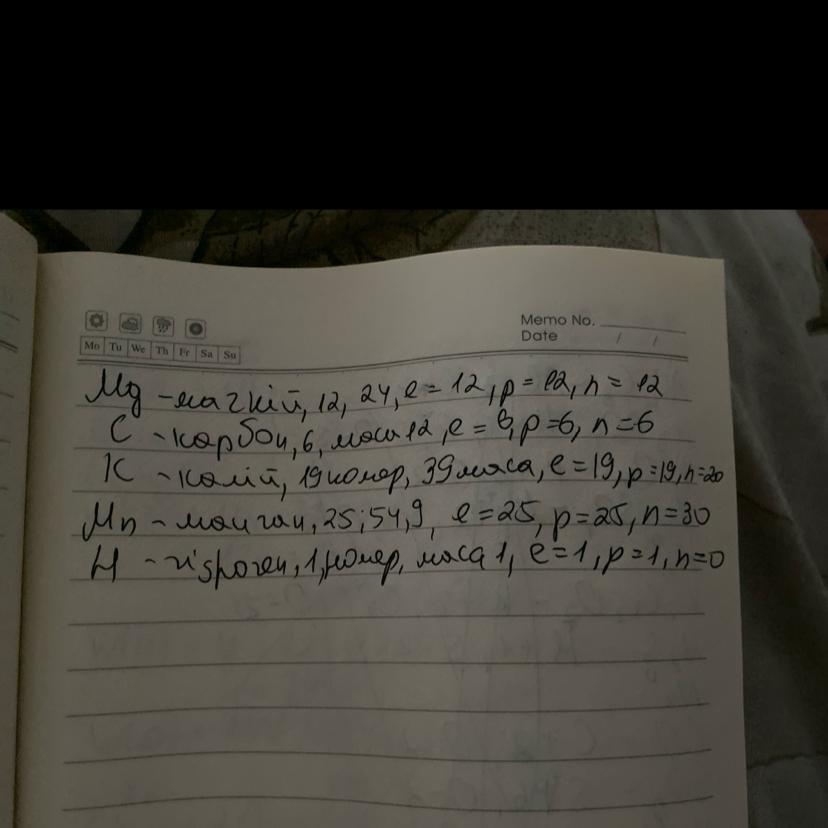 Memo No.
Date / /
Mo Tu We Th Fr Sa Su
Mg - магній, 12, 24, e = 12, p = 12, n = 12
C - карбон, 6, маса 12, e = 6, p = 6, n = 6
K - калій, 19 номер, 39 маса, e = 19, p = 19, n = 20
Mn - манган, 25; 54,9, e = 25, p = 25, n = 30
H - гідроген, 1, номер, маса 1, e = 1, p = 1, n = 0